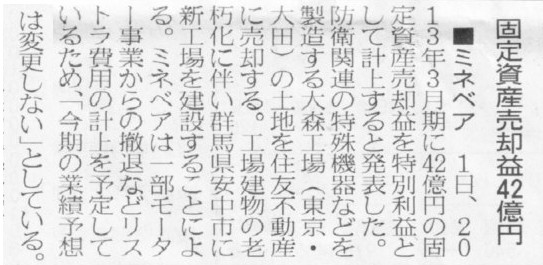 固定資産売却益42億円
■ミネベア　1日、20
13年3月期に42億円の固
定資産売却益を特別利益と
して計上すると発表した。
防衛関連の特殊機器などを
製造する大森工場（東京・
大田）の土地を住友不動産
に売却する。工場建物の老
朽化に伴い群馬県安中市に
新工場を建設することによ
る。ミネベアは一部モータ
ー事業からの撤退などリス
トラ費用の計上を予定して
いるため、「今期の業績予想
は変更しない」としている。